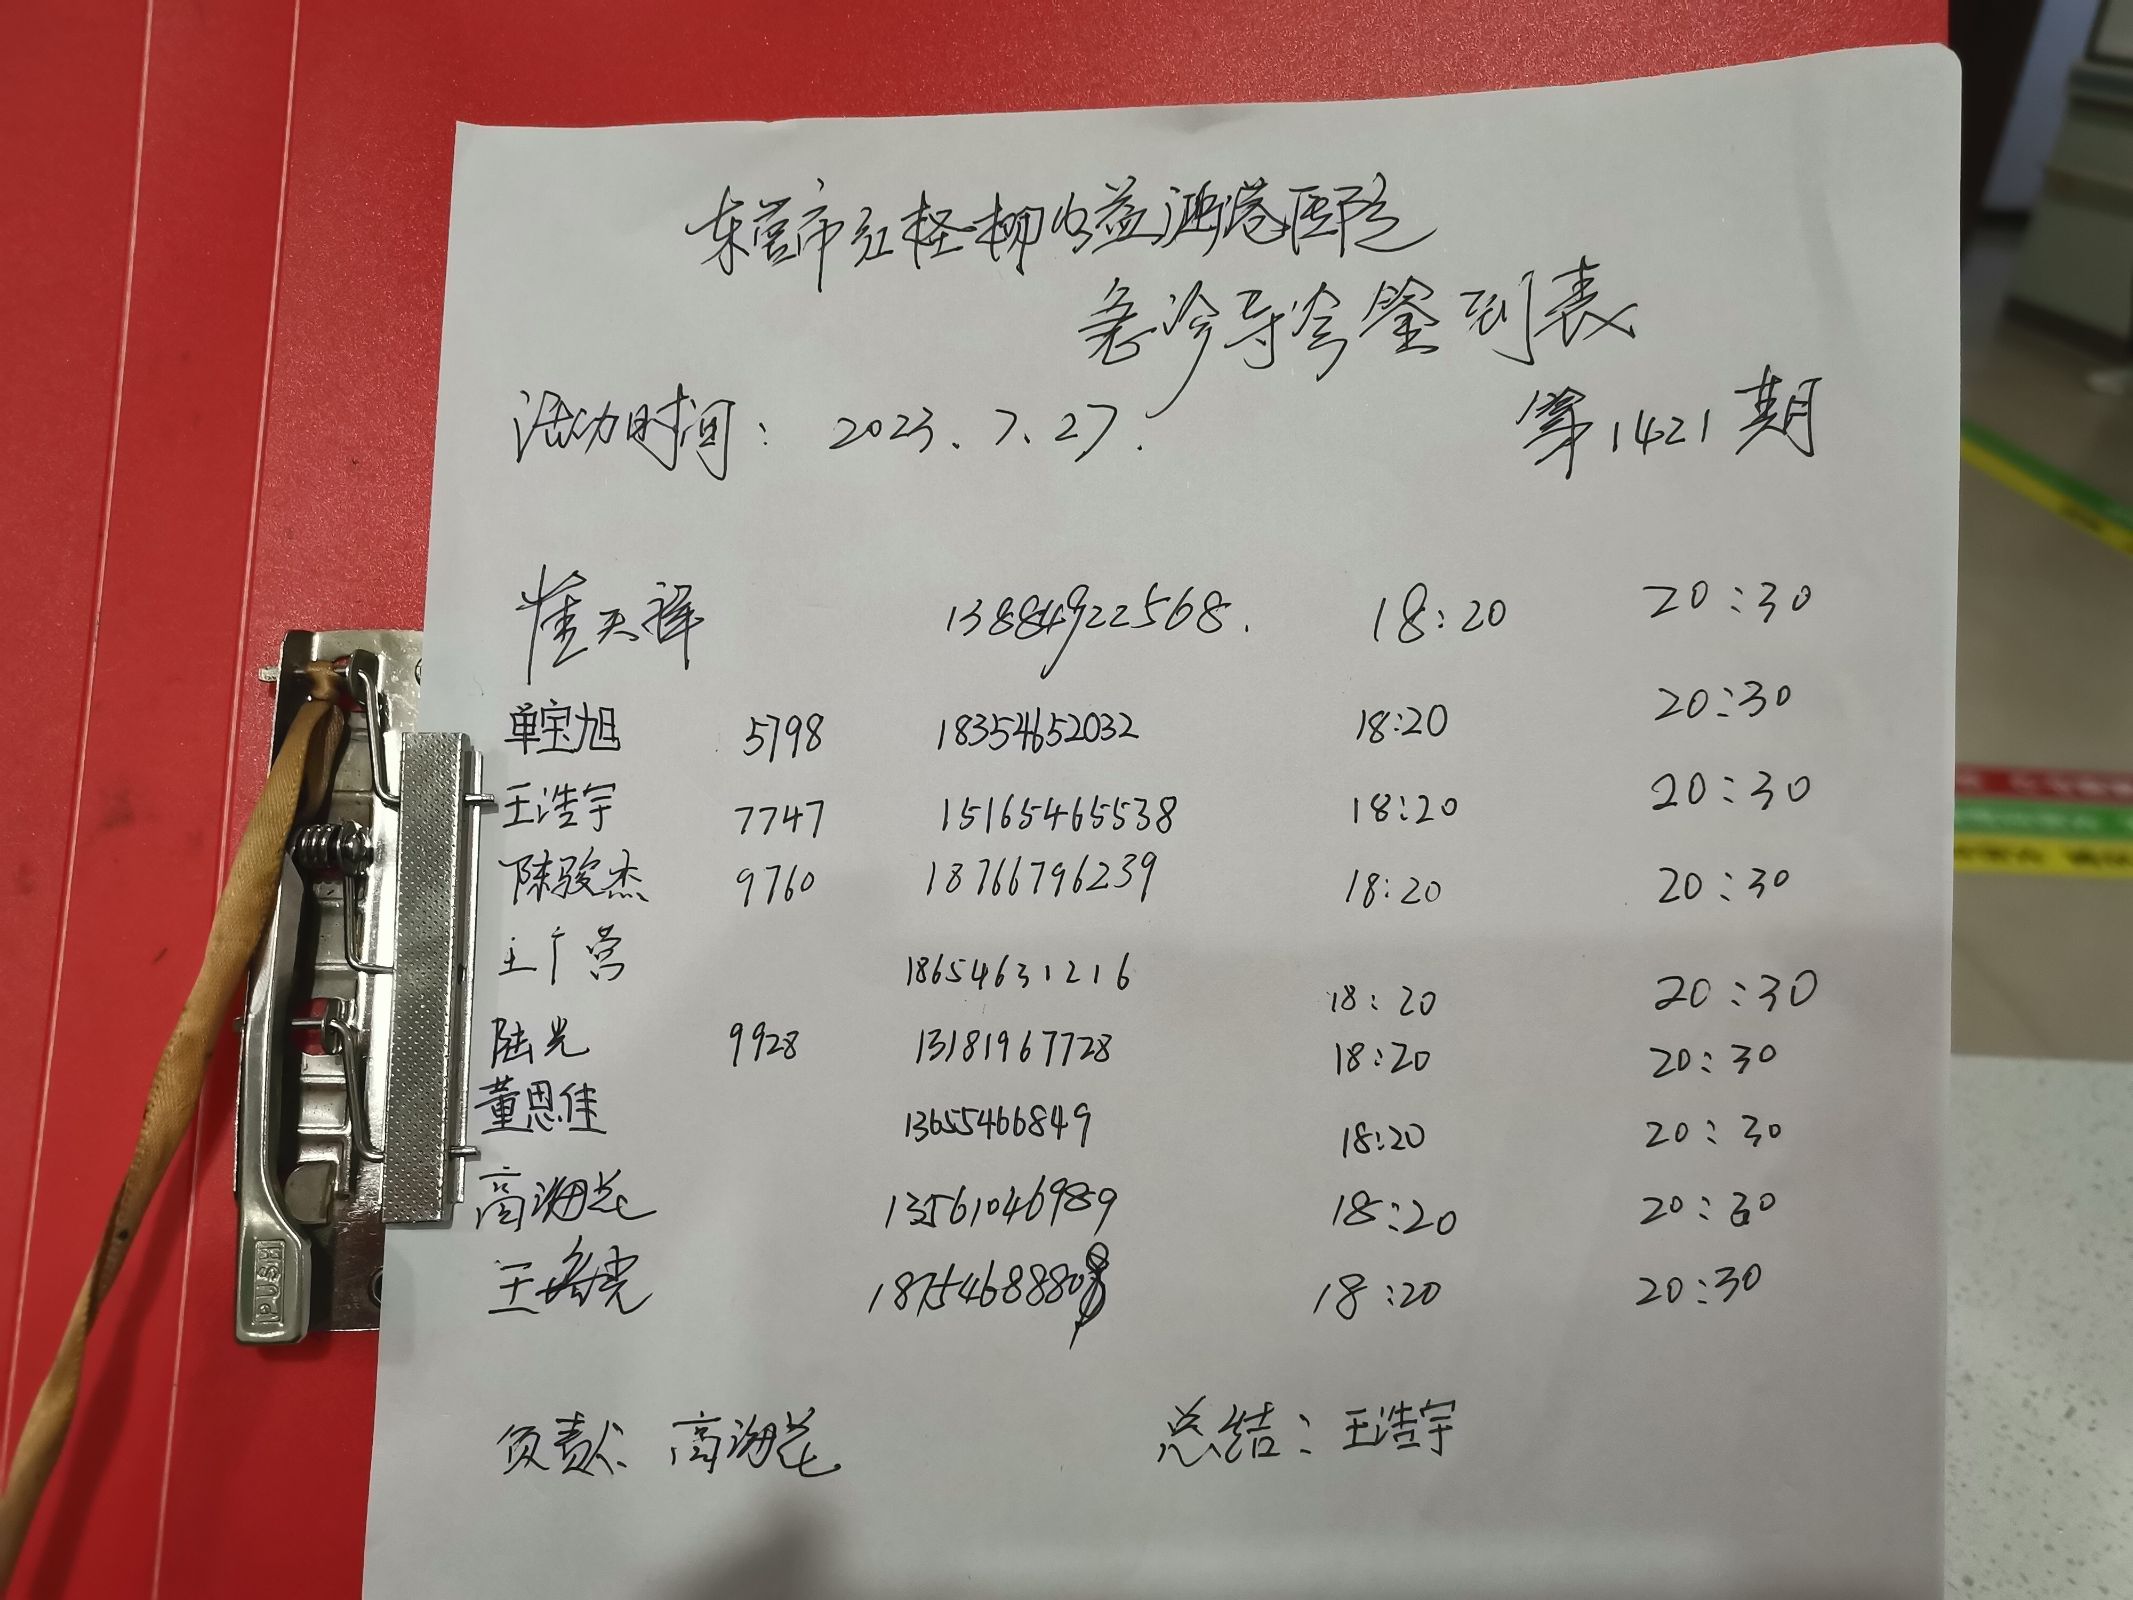 东营市红柽柳公益鸿港医院
急诊导诊签到表
活动时间: 2023.7.27. 第1421期
崔天祥 13884922568. 18:20 20:30
单宝旭 5798 18354652032 18:20 20:30
王浩宇 7747 15165465538 18:20 20:30
陈骏杰 9760 18766796239 18:20 20:30
王广营 18654631216 18:20 20:30
陆光 9928 13181967728 18:20 20:30
董恩佳 13655466849 18:20 20:30
高海花 13561046989 18:20 20:30
王 18:20 20:30
负责人: 高海花 总结: 王浩宇
PUSH